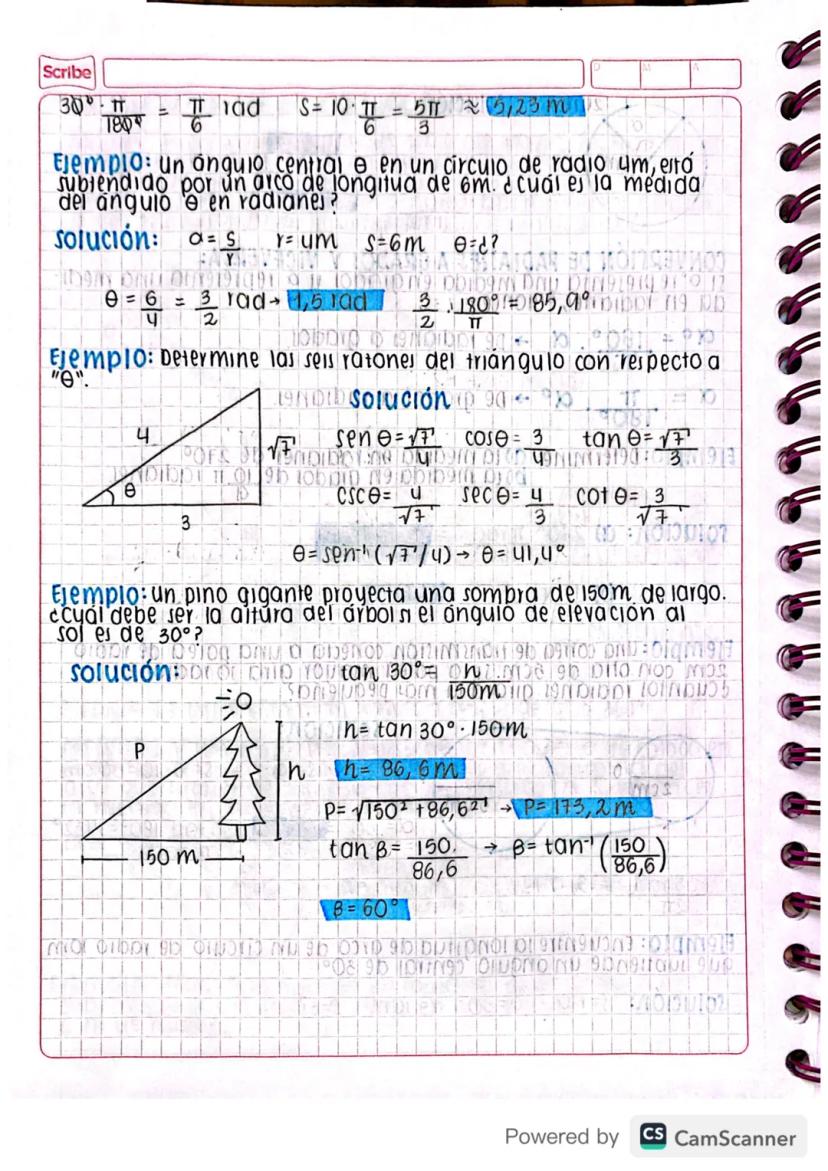 Scribe
D M A
30° · π/180° = π/6 rad S = 10 · π/6 = 5π/3 ≈ 5,23 m
Ejemplo: un ángulo central θ en un círculo de radio 4m, está
subtendido por un arco de longitud de 6m. ¿Cuál es la medida
del ángulo θ en radianes?
Solución: α = S/r r = 4m S = 6m θ = ¿?
θ = 6/4 = 3/2 rad → 1,5 rad 3/2 · 180°/π = 85,9°
Ejemplo: Determine las seis razones del triángulo con respecto a
"θ".
Solución
4 √7 θ 3
sen θ = √7/4 cos θ = 3/4 tan θ = √7/3
csc θ = 4/√7 sec θ = 4/3 cot θ = 3/√7
θ = sen⁻¹(√7/4) → θ = 41,4°
Ejemplo: un pino gigante proyecta una sombra de 150m de largo.
¿Cuál debe ser la altura del árbol si el ángulo de elevación al
sol es de 30°?
Solución: tan 30° = h/150m
h = tan 30° · 150m
P h
h = 86,6 m
P = √150² + 86,6² → P = 173,2 m
150 m
tan β = 150/86,6 → β = tan⁻¹(150/86,6)
β = 60°
Powered by CS CamScanner